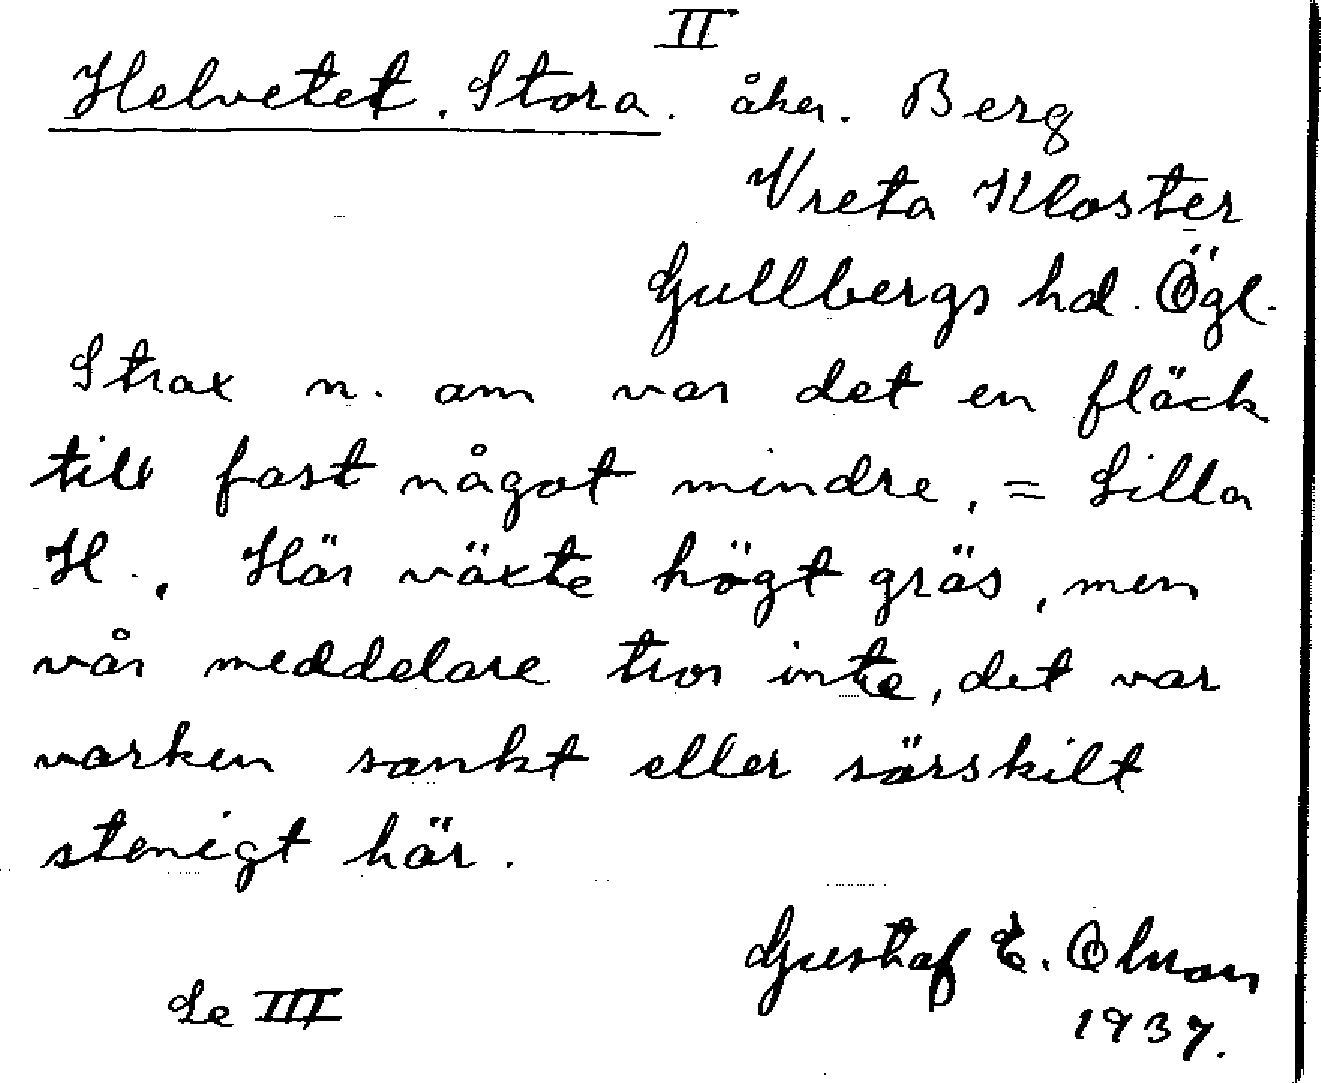 II
Helvetet. Stora. åker. Berg
Vreta Kloster
Gullbergs hd. Ögl.
Strax n. om var det en fläck
till fast något mindre, = Lilla
H., Här växte högt gräs, men
vår meddelare tror inte, det var
varken sankt eller särskilt
stenigt här.
Gustaf E.
Se III
1937.